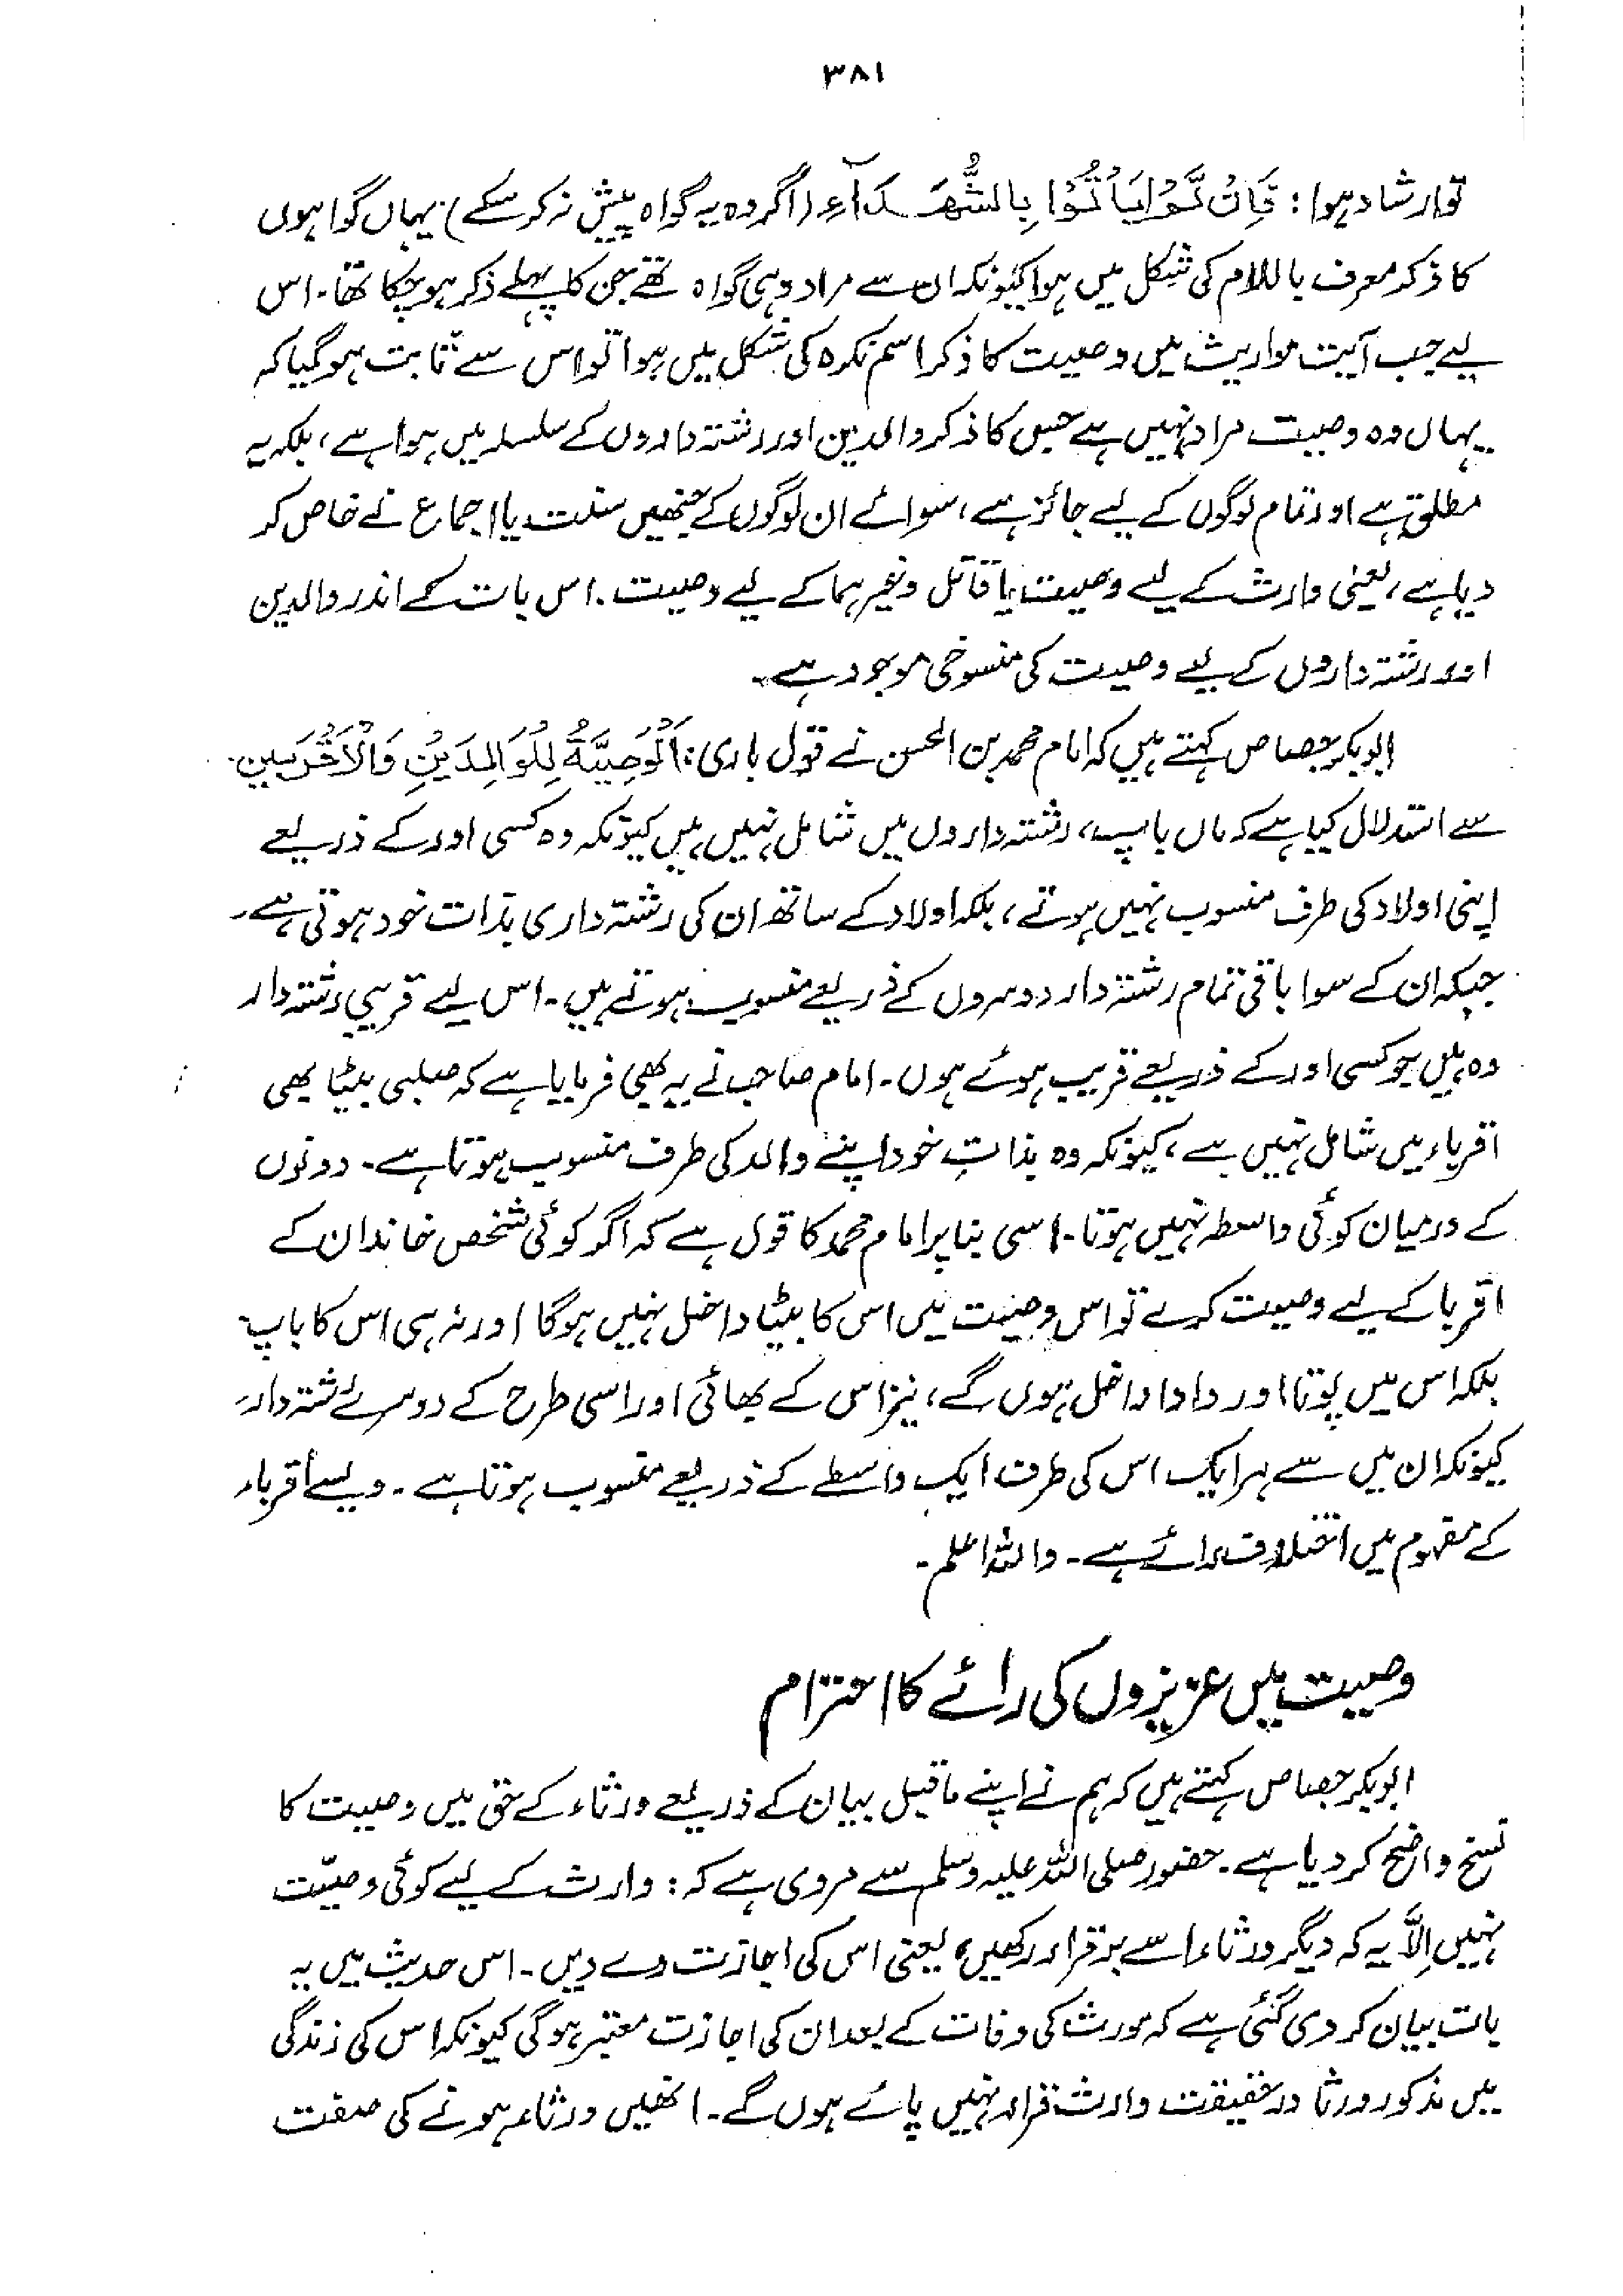 ۳۸۱
تو ارشاد ہوا: فَاِنْ لَّمْ یَأْتُوْا بِالشُّھَدَآءِ (اگر وہ یہ گواہ پیش نہ کرسکے) یہاں گواہوں
کا ذکر معرف باللام کی شکل میں ہوا کیونکہ ان سے مراد وہی گواہ تھے جن کا پہلے ذکر ہو چکا تھا۔ اس
لیے جب آیت مواریث میں وصیت کا ذکر اسم نکرہ کی شکل میں ہوا تو اس سے ثابت ہوگیا کہ
یہاں وہ وصیت مراد نہیں ہے جس کا ذکر والدین اور رشتہ داروں کے سلسلہ میں ہوا ہے، بلکہ یہ
مطلق ہے اور تمام لوگوں کے لیے جائز ہے، سوائے ان لوگوں کے جنھیں سنت یا اجماع نے خاص کر
دیا ہے، یعنی وارث کے لیے وصیت یا قاتل وغیرہما کے لیے وصیت۔ اس بات کے اندر والدین
اور رشتہ داروں کے لیے وصیت کی منسوخی موجود ہے۔
ابوبکر جصاص کہتے ہیں کہ امام محمد بن الحسن نے قول باری: اَلْوَصِیَّۃُ لِلْوَالِدَیْنِ وَالْاَقْرَبِیْن۔
سے استدلال کیا ہے کہ ماں باپ، رشتہ داروں میں شامل نہیں ہیں کیونکہ وہ کسی اور کے ذریعے
اپنی اولاد کی طرف منسوب نہیں ہوتے، بلکہ اولاد کے ساتھ ان کی رشتہ داری بذات خود ہوتی ہے۔
جبکہ ان کے سوا باقی تمام رشتہ دار دوسروں کے ذریعے منسوب ہوتے ہیں۔ اس لیے قریبی رشتہ دار
وہ ہیں جو کسی اور کے ذریعے قریب ہوئے ہوں۔ امام صاحب نے یہ بھی فرمایا ہے کہ صلبی بیٹا بھی
اقرباء میں شامل نہیں ہے، کیونکہ وہ بذاتِ خود اپنے والد کی طرف منسوب ہوتا ہے۔ دونوں
کے درمیان کوئی واسطہ نہیں ہوتا۔ اسی بنا پر امام محمد کا قول ہے کہ اگر کوئی شخص خاندان کے
اقربا کے لیے وصیت کرے تو اس وصیت میں اس کا بیٹا داخل نہیں ہوگا اور نہ ہی اس کا باپ
بلکہ اس میں پوتا اور دادا داخل ہوں گے، نیز اس کے بھائی اور اسی طرح کے دوسرے رشتہ دار،
کیونکہ ان میں سے ہر ایک اس کی طرف ایک واسطے کے ذریعے منسوب ہوتا ہے۔ ویسے اقرباء
کے مفہوم میں اختلاف رائے ہے۔ واللہ اعلم۔
وصیت میں عزیزوں کی رائے کا احترام
ابوبکر جصاص کہتے ہیں کہ ہم نے اپنے ماقبل بیان کے ذریعے ورثاء کے حق میں وصیت کا
نسخ واضح کردیا ہے۔ حضور صلی اللہ علیہ وسلم سے مروی ہے کہ: وارث کے لیے کوئی وصیّت
نہیں اِلَّا یہ کہ دیگر ورثاء اسے برقرار رکھیں، یعنی اس کی اجازت دے دیں۔ اس حدیث میں یہ
بات بیان کردی گئی ہے کہ مورث کی وفات کے بعد ان کی اجازت معتبر ہوگی کیونکہ اس کی زندگی
میں مذکور ورثا درحقیقت وارث قرار نہیں پائے ہوں گے۔ انھیں ورثاء ہونے کی صفت